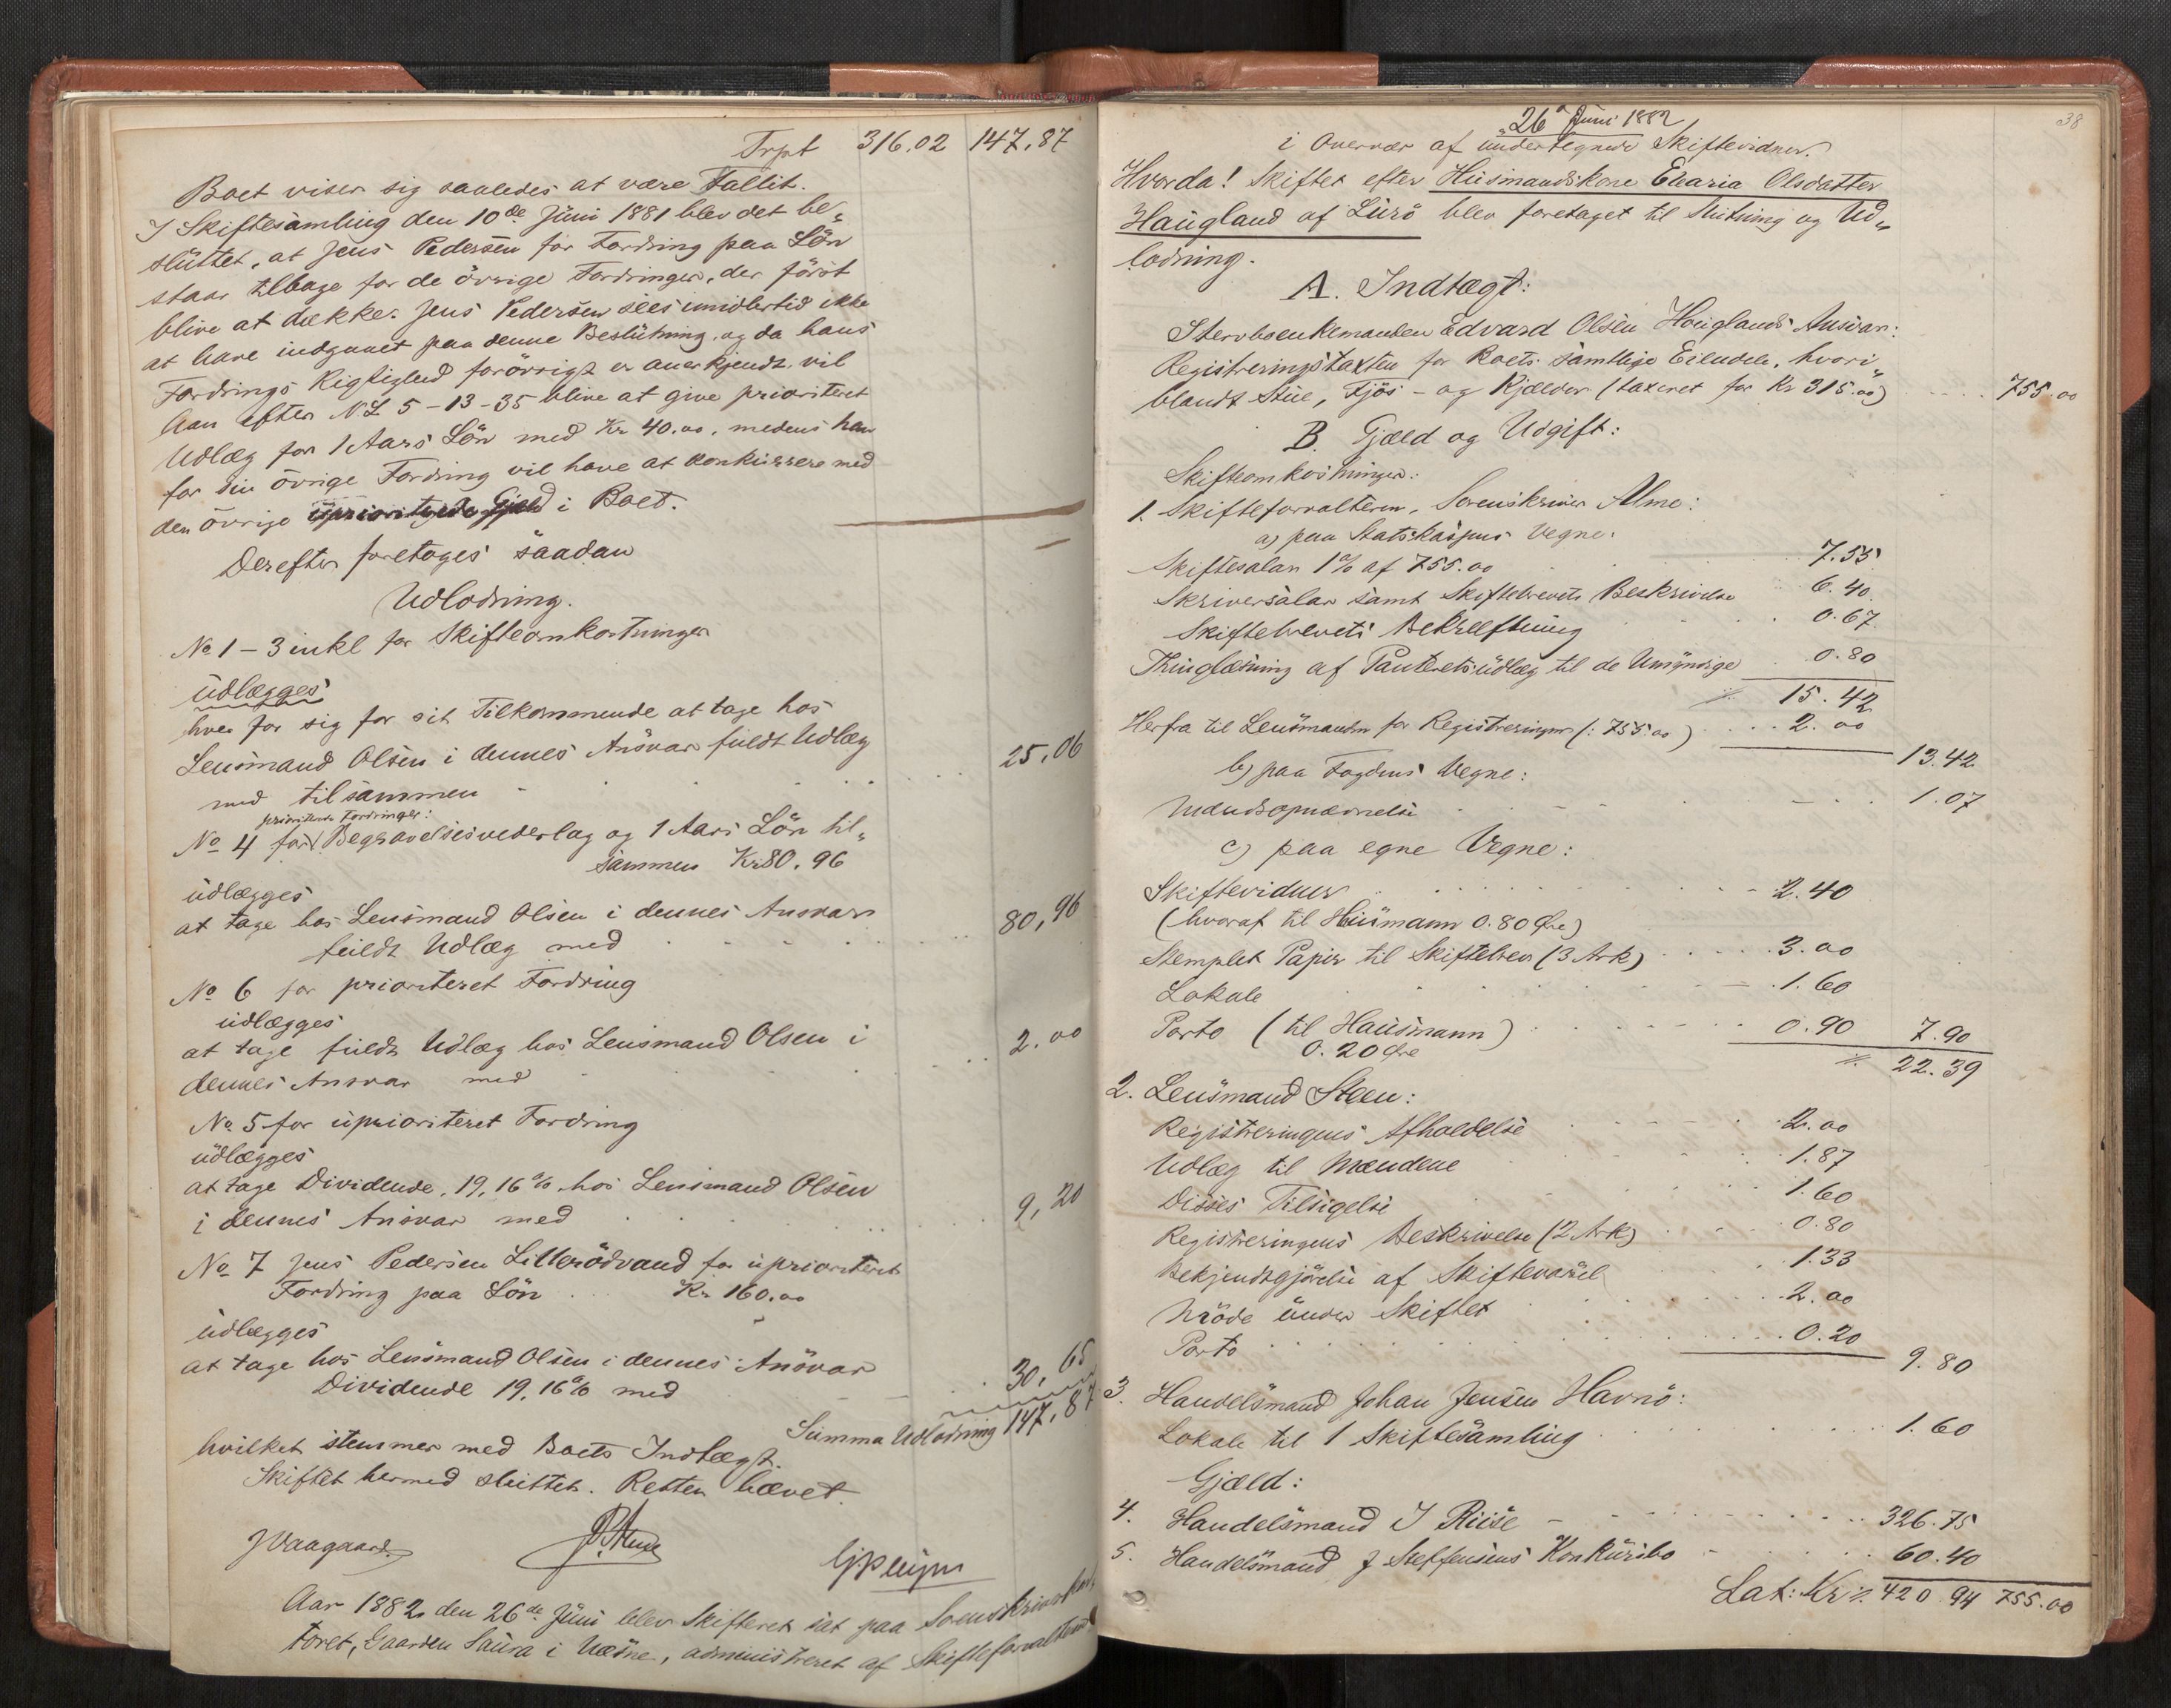 Trpt 316.02 147,87
Boet viser sig saaledes at være Fallit.
I Skiftesamling den 10de Juni 1881 blev det be„
sluttet, at Jens Pedersen for Fordring paa Lön
staar tilbage for de övrige Fordringer, der först
blive at dække. Jens Pedersen sees imidlertid ikke
at have indgaaet paa denne Beslutning, og da hans
Fordrings Rigtighed forövrigt er anerkjendt, vil
han efter NL 5-13-35 blive at give prioriteret
Udlæg for 1 Aars Lön med Kr 40.00, medens han
for sin övrige Fordring vil have at konkurrere med
den övrige uprioriterede Gjæld i Boet.
Derefter foretoges saadan
Udlodning.
No 1-3 inkl for Skifteomkostninger
udlægges
hver for sig for sit Tilkommende at tage hos
Lensmand Olsen i dennes Ansvar fuldt Udlæg
med tilsammen 25,06
prioriterede Fordringer:
No 4 for Begravelsesvederlag og 1 Aars Lön til„
sammen Kr 80.96
udlægges
at tage hos Lensmand Olsen i dennes Ansvar
fuldt Udlæg med 80,96
No 6 for prioriteret Fordring
udlægges
at tage fuldt Udlæg hos Lensmand Olsen i
dennes Ansvar med 2.00
No 5 for uprioriteret Fordring
udlægges
at tage Dividende, 19,16% hos Lensmand Olsen
i dennes Ansvar med 9,20
No 7 Jens Pedersen Lillerödvand for uprioriteret
Fordring paa Lön Kr 160.00
udlægges
at tage hos Lensmand Olsen i dennes Ansvar
Dividende 19,16% med 30,65
Summa Udlodning 147,87
hvilket stemmer med Boets Indtægt.
Skiftet hermed sluttet. Retten hævet.
JVaagaard
Aar 1882 den 26de Juni blev Skifteret sat paa Sorenskriverkon„
toret, Gaarden Saura i Næsne, administreret af Skifteforvalteren
38
26 Juni 1882
i Overvær af undertegnede Skiftevidner.
Hvorda! Skiftet efter Husmandskone Elearia Olsdatter
Haugland af Lurö blev foretaget til Slutning og Ud„
lodning.
A. Indtægt:
Stervboenkemanden Edvard Olsen Hauglands Ansvar:
Registreringstaxten for Boets samtlige Eiendele, hvori„
blandt Stue, Fjös- og Kjælder (taxeret for Kr 315.00) 755.00
B. Gjæld og Udgift:
Skifteomkostninger:
1. Skifteforvalteren, Sorenskriver Alme:
a) paa Statskassens Vegne:
Skiftesalær 1% af 755.00 7.55
Skriversalær samt Skiftebrevets Beskrivelse 6.40
Skiftebrevets Bekræftning 0.67
Thinglæsning af Panteretsudlæg til de Umyndige 0.80
15.42
Herfra til Lensmanden for Registreringen (: 755.00) 2.00
13.42
b) paa Fogdens Vegne:
Mandsopnævnelse 1.07
c) paa egne Vegne:
Skiftevidner 2.40
(hvoraf til Husmann 0.80 Øre)
Stemplet Papir til Skiftebrev (3 Ark) 3.00
Lokale 1.60
Porto (til Hausmann) 0.90 7.90
0.20 Øre
22.39
2. Lensmand Steen:
Registreringens Afholdelse 2.00
Udlæg til Mændene 1.87
Disses Tilsigelse 1.60
Registreringens Beskrivelse (2 Ark) 0.80
Bekjendtgjörelse af Skiftevarsel 1.33
Möde under Skiftet 2.00
Porto 0.20
9.80
3. Handelsmand Johan Jensen Havnö:
Lokale til 1 Skiftesamling 1.60
Gjæld:
4. Handelsmand I Riise 326.75
5. Handelsmand J Steffensens Konkursbo 60.40
Lat: Kr 420.94 755.00